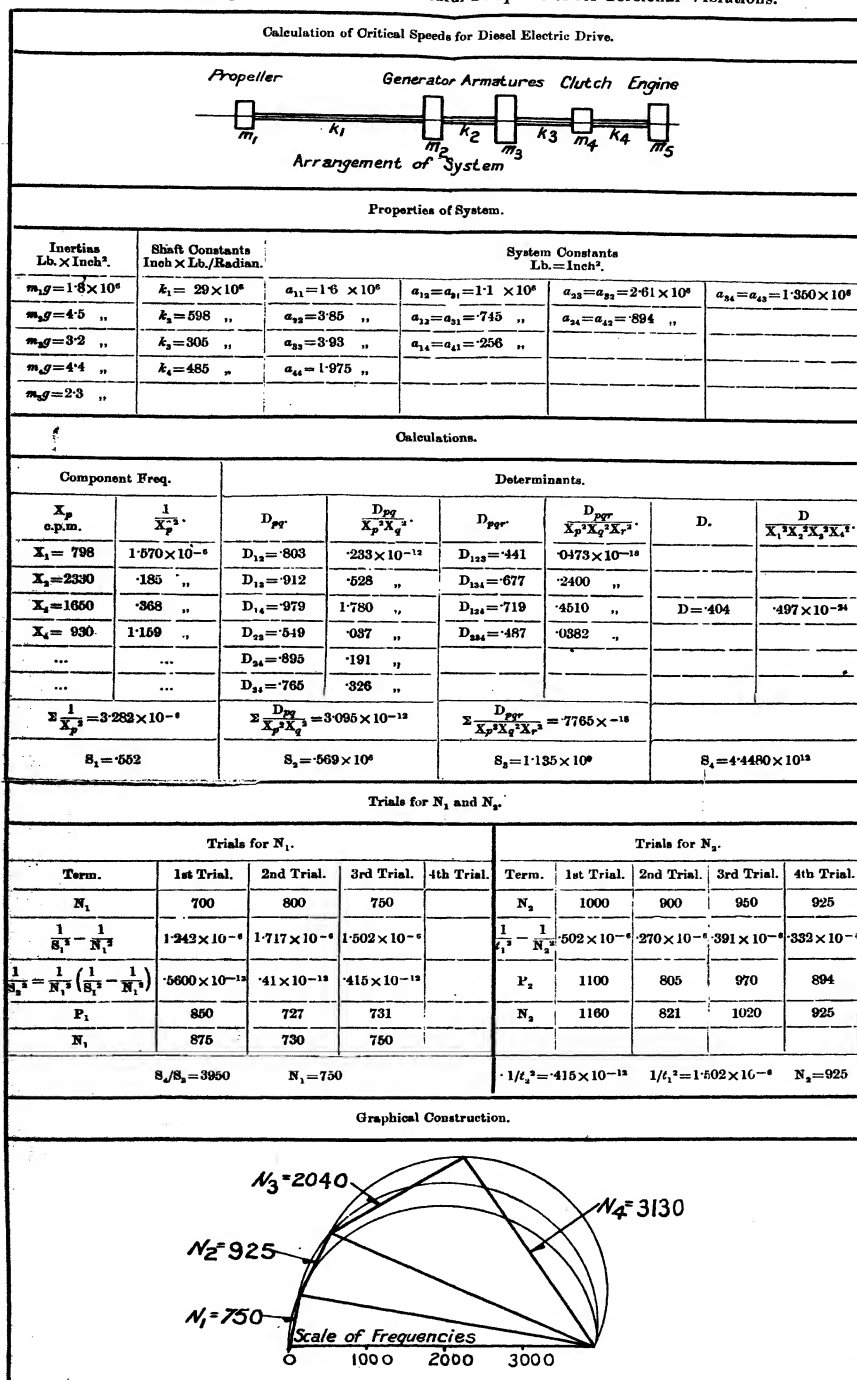 Calculation of Critical Speeds for Diesel Electric Drive.
Propeller Generator Armatures Clutch Engine
m₁ k₁ m₂ k₂ m₃ k₃ m₄ k₄ m₅
Arrangement of System
Properties of System.
Inertias Lb. × Inch². Shaft Constants Inch × Lb./Radian. System Constants Lb. = Inch².
m₁g=1·8×10⁶ k₁= 29×10⁶ a₁₁=1·6 ×10⁶ a₁₂=a₂₁=1·1 ×10⁶ a₂₃=a₃₂=2·61×10⁶ a₃₄=a₄₃=1·350×10⁶
m₂g=4·5 ,, k₂=598 ,, a₂₂=3·85 ,, a₁₃=a₃₁=·745 ,, a₂₄=a₄₂=·894 ,,
m₃g=3·2 ,, k₃=305 ,, a₃₃=3·93 ,, a₁₄=a₄₁=·256 ,,
m₄g=4·4 ,, k₄=485 ,, a₄₄= 1·975 ,,
m₅g=2·3 ,,
Calculations.
Component Freq. Determinants.
Xₚ c.p.m. 1/Xₚ². Dpq. Dpq/Xₚ²X_q². Dpqr. Dpqr/Xₚ²X_q²X_r². D. D/X₁²X₂²X₃²X₄².
X₁= 798 1·570×10⁻⁶ D₁₂=·803 ·233×10⁻¹² D₁₂₃=·441 ·0473×10⁻¹⁸
X₂=2330 ·185 ,, D₁₃=·912 ·528 ,, D₁₃₄=·677 ·2400 ,,
X₃=1650 ·368 ,, D₁₄=·979 1·780 ,, D₁₂₄=·719 ·4510 ,, D=·404 ·497×10⁻²⁴
X₄= 930 1·159 ,, D₂₃=·549 ·037 ,, D₂₃₄=·487 ·0382 ,,
... ... D₂₄=·895 ·191 ,,
... ... D₃₄=·765 ·326 ,,
Σ 1/Xₚ²=3·282×10⁻⁶ Σ Dpq/Xₚ²X_q²=3·095×10⁻¹² Σ Dpqr/Xₚ²X_q²X_r² = ·7765×⁻¹⁸
S₁=·552 S₂=·569×10⁶ S₃=1·135×10⁹ S₄=4·4480×10¹²
Trials for N₁ and N₂.
Trials for N₁. Trials for N₂.
Term. 1st Trial. 2nd Trial. 3rd Trial. 4th Trial. Term. 1st Trial. 2nd Trial. 3rd Trial. 4th Trial.
N₁ 700 800 750 N₂ 1000 900 950 925
1/S₁² − 1/N₁² 1·242×10⁻⁶ 1·717×10⁻⁶ 1·502×10⁻⁶ 1/t₁² − 1/N₂² ·502×10⁻⁶ ·270×10⁻⁶ ·391×10⁻⁶ ·332×10⁻⁶
1/S₂² = 1/N₁² (1/S₁² − 1/N₁²) ·5600×10⁻¹² ·41×10⁻¹² ·415×10⁻¹² P₂ 1100 805 970 894
P₁ 850 727 731 N₂ 1160 821 1020 925
N₁ 875 730 750
S₄/S₃=3950 N₁=750 1/t₂²=·415×10⁻¹² 1/t₁²=1·502×10⁻⁶ N₂=925
Graphical Construction.
N₃=2040
N₄=3130
N₂=925
N₁=750
Scale of Frequencies
0 1000 2000 3000